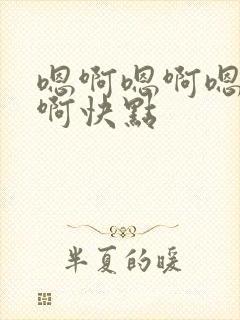 嗯啊嗯啊嗯
啊快點
半夏的暖